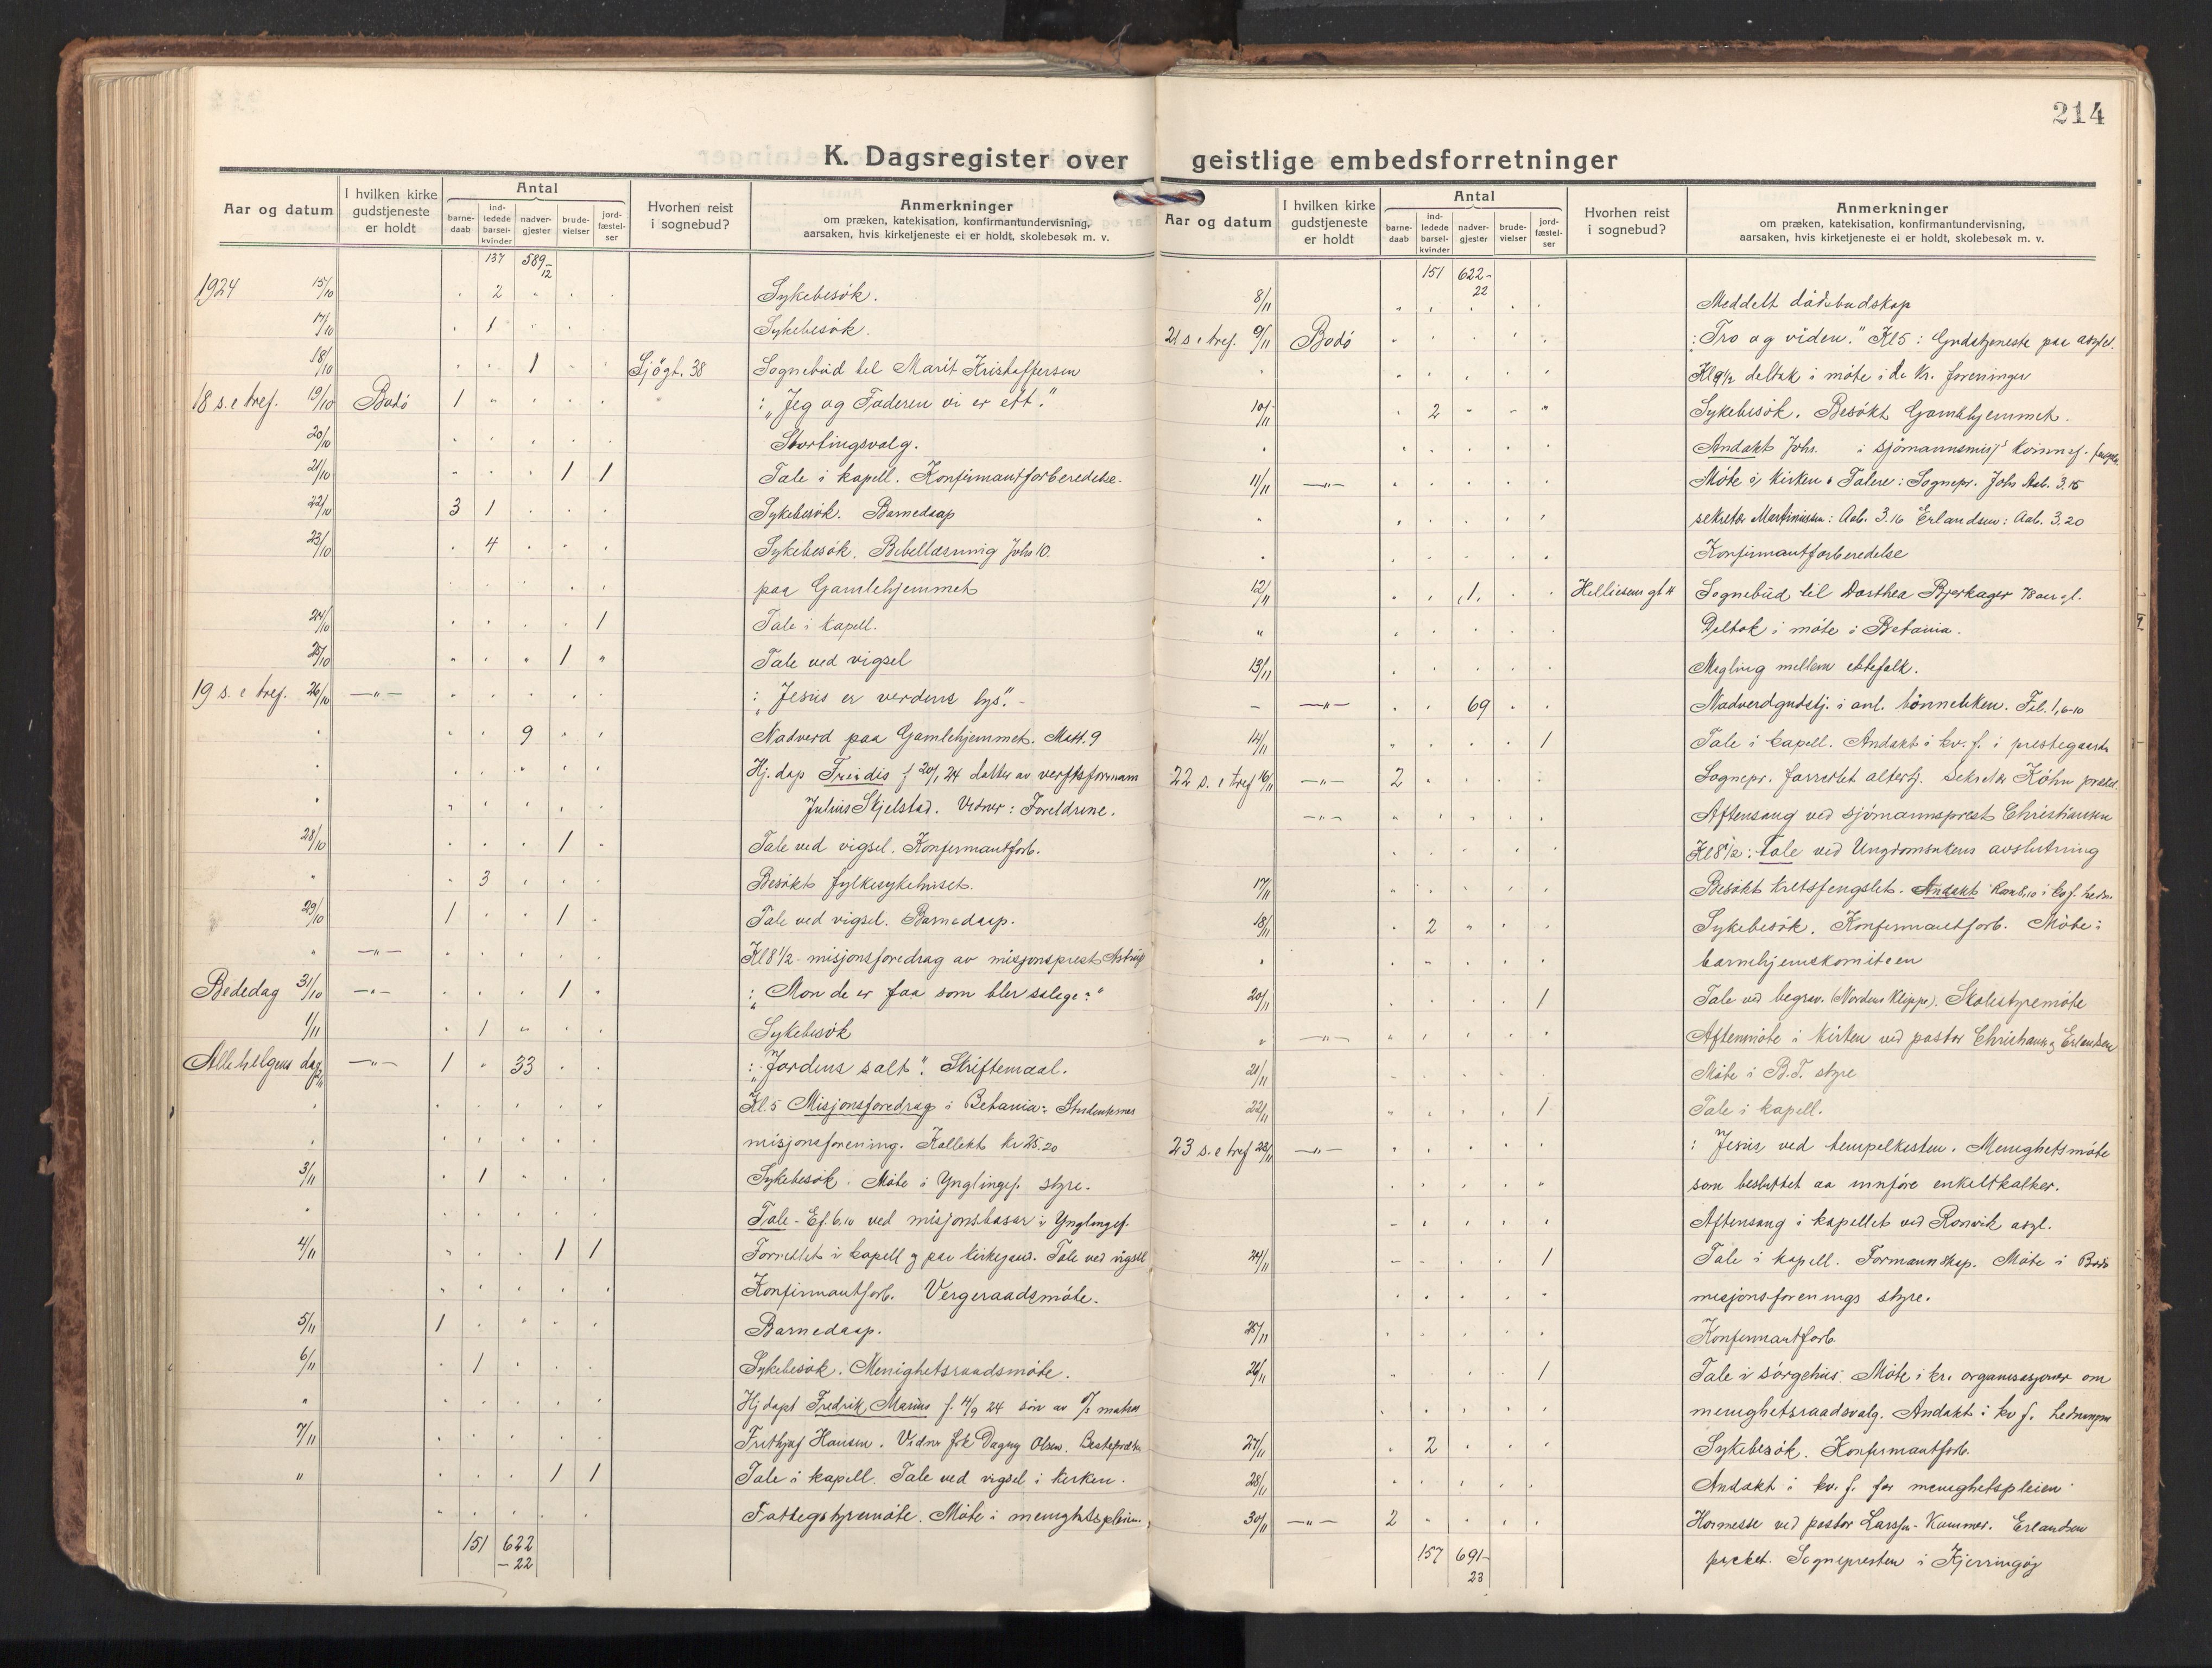 214
K. Dagsregister over geistlige embedsforretninger
Aar og datum
I hvilken kirke gudstjeneste er holdt
Antal
barne-daab
ind-ledede barsel-kvinder
nadver-gjester
brude-vielser
jord-fæstel-ser
Hvorhen reist i sognebud?
Anmerkninger
om præken, katekisation, konfirmantundervisning,
aarsaken, hvis kirketjeneste ei er holdt, skolebesøk m. v.
137 589-12
1924 15/10 2 Sykebesök.
17/10 1 Sykebesök.
18/10 1 Sjögt. 38 Sognebud til Marit Kristoffersen
18 s. e tref. 19/10 Bodö 1 : "Jeg og Faderen vi er ett."
20/10 Stortingsvalg.
21/10 1 1 Tale i kapell. Konfirmantforberedelse.
22/10 3 1 Sykebesök. Barnedaap
23/10 4 Sykebesök. Bibellæsning Johs 10.
paa Gamlehjemmet
24/10 1 Tale i kapell.
25/10 1 Tale ved vigsel
19 s. e tref. 26/10 —"— : "Jesus er verdens lys".
9 Nadverd paa Gamlehjemmet. Matt. 9
Hj. dap Freidis f 20/1 24 datter av verftsformann
Julius Skjelstad. Vidner: Foreldrene.
28/10 1 Tale ved vigsel. Konfirmantforb.
" 3 Besökt fylkesykehuset.
29/10 1 1 Tale ved vigsel. Barnedaap.
" —"— Kl 8 1/2 - misjonsforedrag av misjonsprest Astrup
Bededag 31/10 —"— 1 : "Mon de er faa som blir salige?"
1/11 1 Sykebesök
Allehelgens dag 2/11 —"— 1 33 : "Jordens salt". Skriftemaal.
Kl. 5 Misjonsforedrag i Betania: Studentenes
misjonsforening. Kollekt kr 25.20
3/11 1 Sykebesök. Möte i Ynglingef. styre.
Tale - Ef. 6.10 ved misjonsbasar i Ynglingef.
4/11 1 1 Forrettet i kapell og paa kirkegaard. Tale ved vigsel
Konfirmantforb. Vergeraadsmöte.
5/11 1 Barnedaap.
6/11 1 Sykebesök. Menighetsraadsmöte.
" Hj dapt Fredrik Marius f. 14/9 24 sön av matros
7/11 Frithjof Hansen. Vidne frk Dagny Olsen.
" 1 1 Tale i kapell. Tale ved vigsel i kirken.
Fattigstyremöte. Möte i menighetspleien.
151 622 -22
Aar og datum
I hvilken kirke gudstjeneste er holdt
Antal
barne-daab
ind-ledede barsel-kvinder
nadver-gjester
brude-vielser
jord-fæstel-ser
Hvorhen reist i sognebud?
Anmerkninger
om præken, katekisation, konfirmantundervisning,
aarsaken, hvis kirketjeneste ei er holdt, skolebesøk m. v.
151 622-22
8/11 Meddelt dödsbudskap
21 s e tref. 9/11 Bodö : "Tro og viden." Kl 5: Gudstjeneste paa asylet.
Kl 9 1/2 deltok i möte i de kr. foreninger
10/11 2 Sykebesök. Besökt Gamlehjemmet.
Andakt Johs. i sjömannsmisj.
11/11 —"— Möte i kirken. Talere: Sognepr. Johs Aab. 3.15
sekretær Martiniussen: Aab. 3.16 Erlandsen: Aab. 3.20
Konfirmantforberedelse
12/11 1 Helliesens gt 11 Sognebud til Dorthea Bjerkager 78 aar gl.
" Deltok i möte i Betania.
13/11 Megling mellem ektefolk.
- —"— 69 Nadverdgudstj. i anl. bönneuken. Fil. 1,6-10
14/11 1 Tale i kapell. Andakt i kv. f. i prestegaarden
22 s. e tref 16/11 —"— 2 Sognepr. forrettet altertj. Sekretær Köhn preket.
—"— Aftensang ved sjömannsprest Christiansen
Kl 8 1/2: tale ved Ungdomsukens avslutning
17/11 Besökt kretsfengslet. Andakt Rom 8,10 i kv f.
18/11 2 Sykebesök. Konfirmantforb. Möte i
barnehjemskomiteen
20/11 1 Tale ved begrav. (Nordens Klippe). Skolestyremöte
" —"— Aftenmöte i kirken ved pastor Christiansen og Erlandsen
21/11 Möte i B.T. styre
22/11 1 Tale i kapell.
23 s. e tref 23/11 —"— : "Jesus ved tempelkisten. Menighetsmöte
som besluttet aa innföre enkeltkalker.
Aftensang i kapellet ved Rönvik asyl.
24/11 1 Tale i kapell. Formannskap. Möte i Bodö
misjonsforenings styre.
25/11 Konfirmantforb.
26/11 1 Tale i sörgehus. Möte i kr. organisasjoner om
menighetsraadsvalg. Andakt i kv f.
27/11 2 Sykebesök. Konfirmantforb.
28/11 Andakt i kv. f. for menighetspleien
30/11 —"— 2 Hoimesse ved pastor Larssen- Kummer. Erlandsen
preket. Sognepresten i Kjerringöy
157 691-23